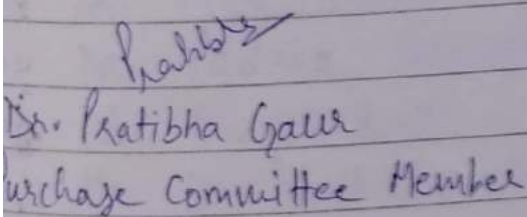 Dr. Pratibha Gaur
urchase Committee Member